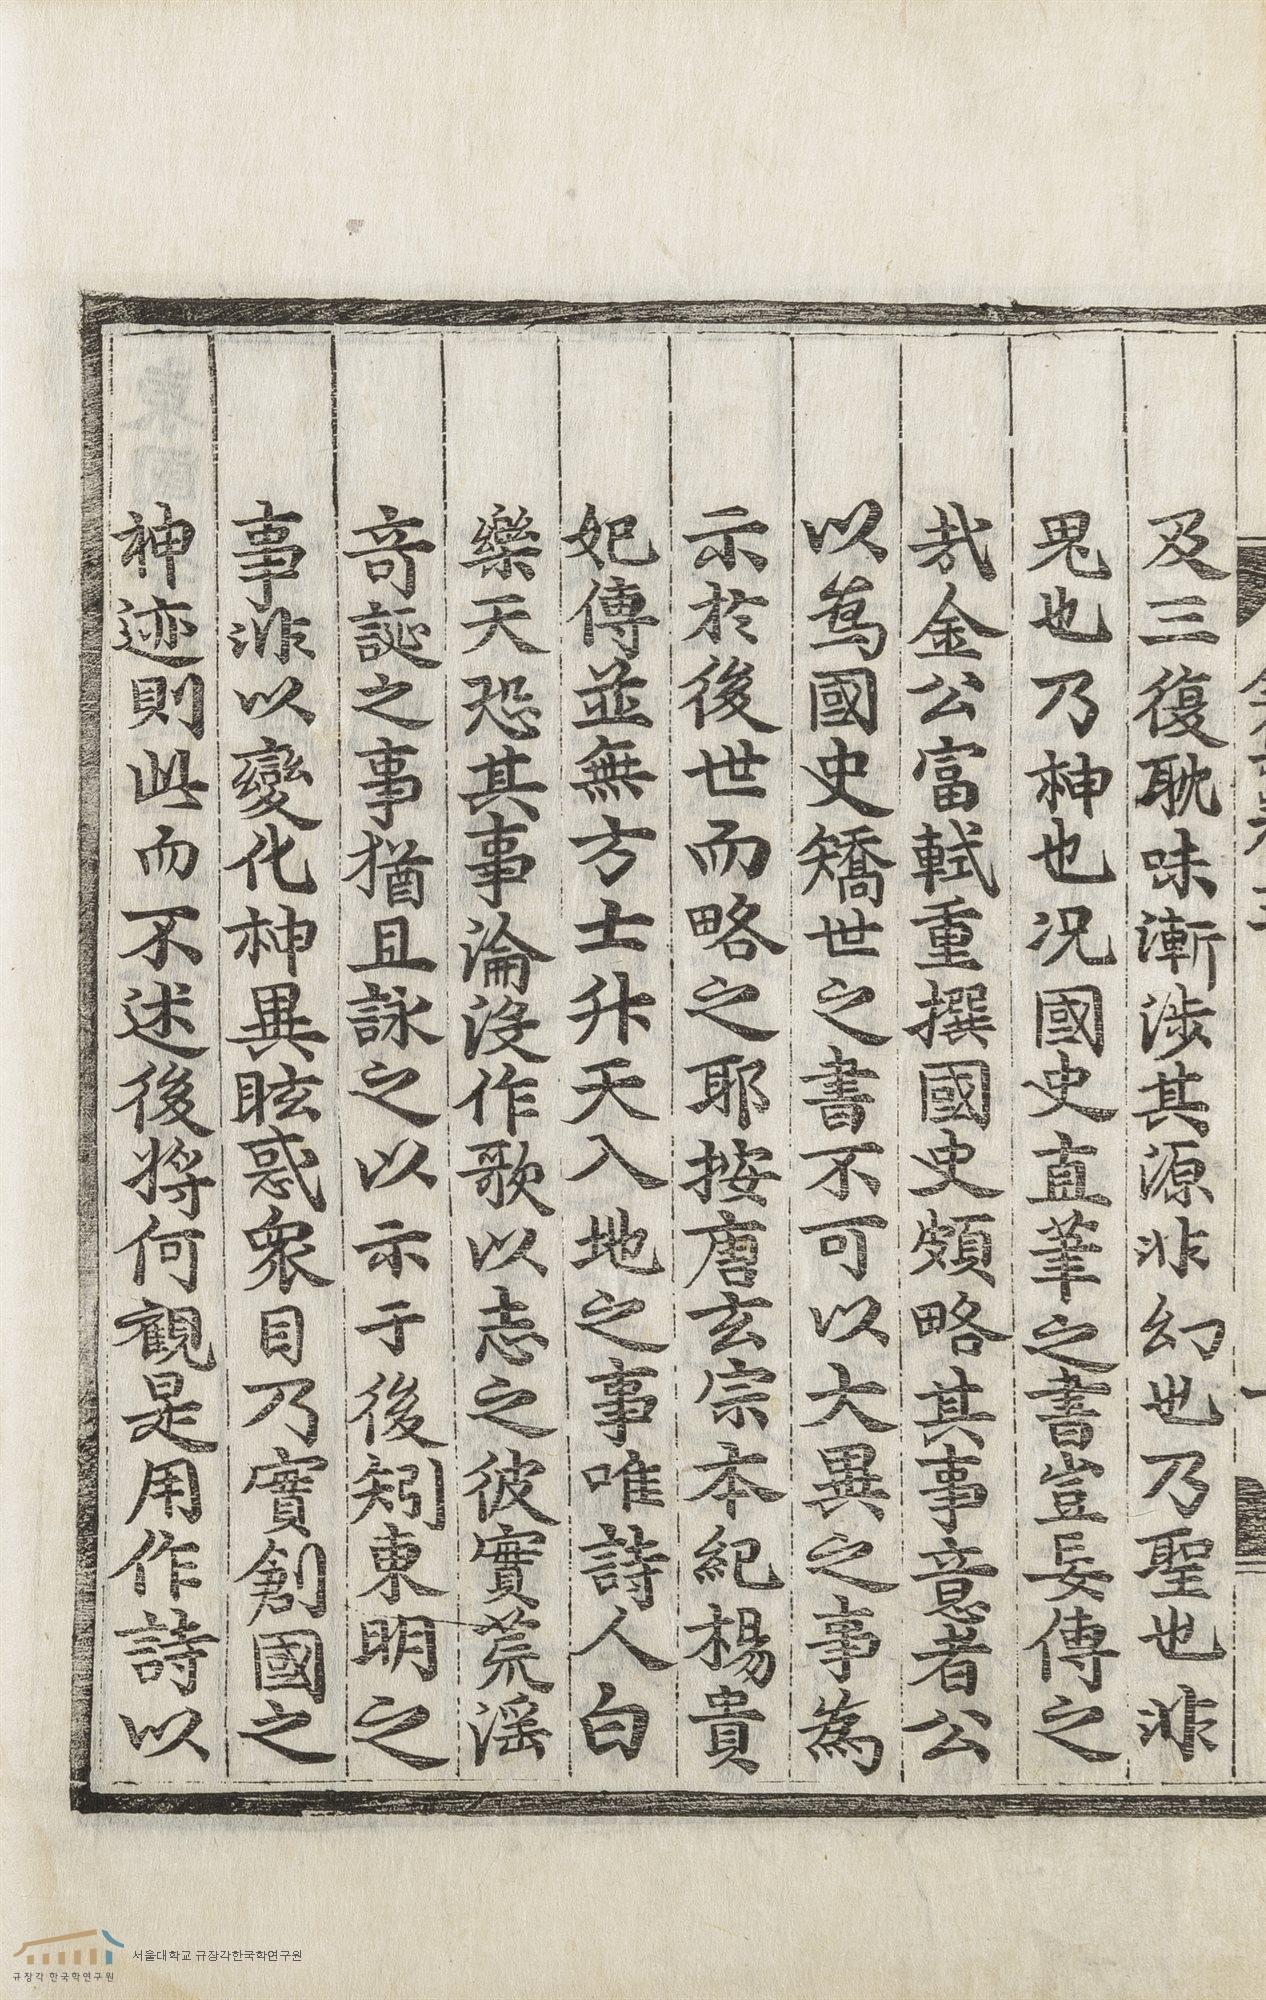 及三復耽味漸涉其源非幻也乃聖也非
鬼也乃神也況國史直筆之書豈妄傳之
哉金公富軾重撰國史頗略其事意者公
以爲國史矯世之書不可以大異之事爲
示於後世而略之耶按唐玄宗本紀楊貴
妃傳並無方士升天入地之事唯詩人白
樂天恐其事淪沒作歌以志之彼實荒淫
奇誕之事猶且詠之以示于後矧東明之
事非以變化神異眩惑衆目乃實創國之
神迹則此而不述後將何觀是用作詩以
규장각 한국학연구원
서울대학교 규장각한국학연구원